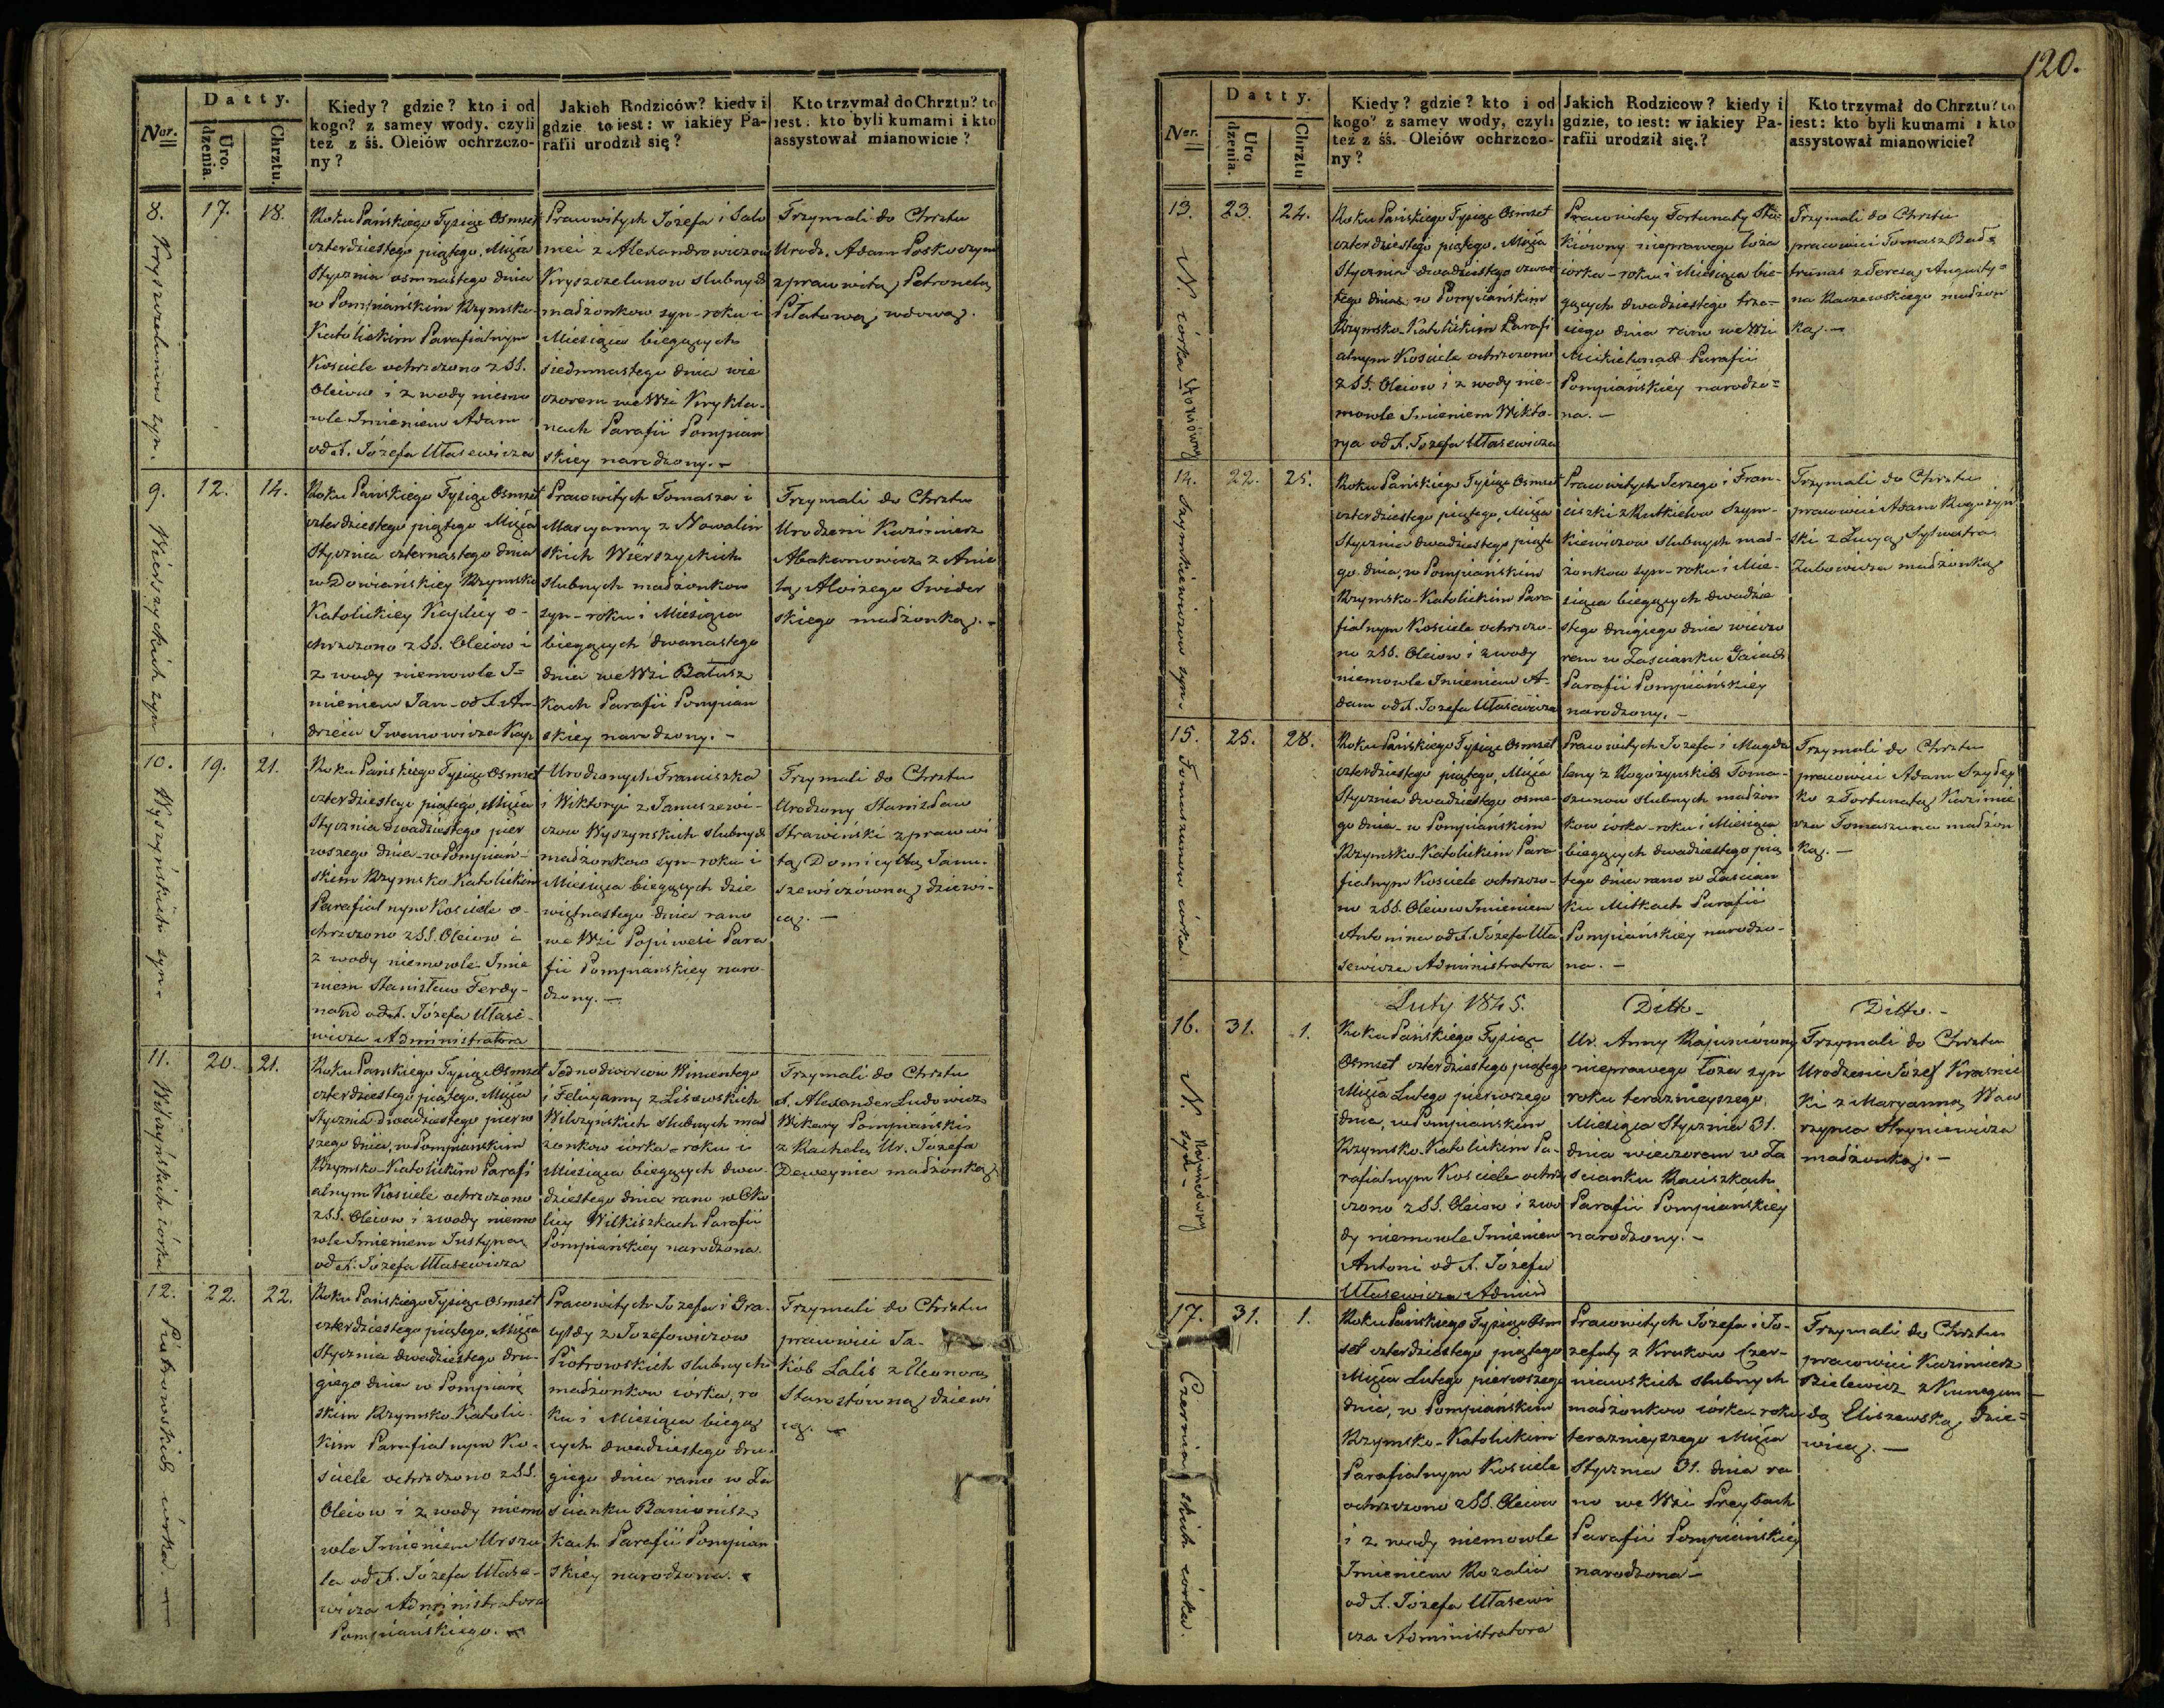 Ner.
Datty.
Uro. dzenia.
Chrztu.
Kiedy? gdzie? kto i od
kogo? z samey wody, czyli
też z śś. Oleiów ochrzczo-
ny?
Jakich Rodziców? kiedy i
gdzie, to iest: w iakiey Pa-
rafii urodził się?
Kto trzymał do Chrztu? to
iest: kto byli kumami i kto
assystował mianowicie?
8.
Kryszczelunow syn.
17.
18.
Roku Pańskiego Tysiąc Osmset
czterdziestego piątego, Mieśąca
Stycznia osmnastego dnia
w Pompiańskim Rzymsko-
Katolickim Parafialnym
Kościele ochrzczono z SS.
Oleiow i z wody niemo
wle Imieniem Adam
od X. Józefa Ułasewicza
Prawowitych Józefa i Salo
mei z Alexandrowiczow
Kryszczelunow slubnych
małżonkow syn - roku i
Miesiąca bieżących
siedmnastego dnia wie
czorem we Wsi Krykla-
nach Parafii Pompian
skiey narodzony. -
Trzymali do Chrztu
Urodz. Adam Poskoczym
z prawowitą Petronelą
Piłatową wdową.
9.
Wierszyckich syn
12.
14.
Roku Pańskiego Tysiąc Osmset
czterdziestego piątego Mieśąca
Stycznia czternastego dnia
w Dowiańskiey Rzymsko
Katolickiey Kaplicy o-
chrzczono z SS. Oleiow i
z wody niemowle I-
mieniem Jan - od X. An-
drzeia Iwanowicza Kap
Prawowitych Tomasza i
Maryanny z Nowaliń
skich Wierszyckich
slubnych małżonkow
syn - roku i Miesiąca
bieżących dwanastego
dnia we Wsi Batusz
kach Parafii Pompian
skiey narodzony. -
Trzymali do Chrztu
Urodzeni Kazimierz
Abakanowicz z Anie
lą Aloizego Swider
skiego małżonką. -
10.
Wyszyńskich syn -
19.
21.
Roku Pańskiego Tysiąc Osmset
czterdziestego piątego, Mieśąca
Stycznia dwadziestego pier
wszego dnia - w Pompiań-
skim Rzymsko-Katolickim
Parafialnym Kościele o-
chrzczono z SS. Oleiow i
z wody niemowle Imie
niem Stanisław Ferdy-
nand od X. Józefa Ułase-
wicza Administratora
Urodzonych Franciszka
i Wiktoryi z Januszewi-
czow Wyszynskich slubnych
małżonkow syn - roku i
Miesiąca bieżących dzie
więtnastego dnia rano
we Wsi Popiwesi Para
fii Pompianskiey naro-
dzony. -
Trzymali do Chrztu
Urodzony Stanisław
Strawiński z prawowi
tą Domicyllą Janu-
szewiczówną dziewi-
cą. -
11.
Wilczyńskich córka
20.
21.
Roku Pańskiego Tysiąc Osmset
czterdziestego piątego, Mieśąca
Stycznia dwadziestego pierw
szego dnia, w Pompianskim
Rzymsko-Katolickim Parafi
alnym Kościele ochrzczono
z SS. Oleiow i z wody niemo
wle Imieniem Justyna
od X. Józefa Ułasewicza
Jednodworcow Wincentego
i Felicyanny z Lisowskich
Wilczyńskich slubnych mał
żonkow córka - roku i
Miesiąca bieżących dwa-
dziestego dnia rano w Oko
licy Wilkiszkach Parafii
Pompiańskiey narodzona.
Trzymali do Chrztu
X. Alexander Ludowicz
Wikary Pompiański
z Rachelą Ur. Józefa
Deweynia małżonką
12.
Piotrowskich córka. -
22.
22.
Roku Pańskiego Tysiąc Osmset
czterdziestego piątego, Mieśąca
Stycznia dwadziestego dru-
giego dnia w Pompiań
skim Rzymsko-Katolic-
kim Parafialnym Ko-
ściele ochrzczono z SS.
Oleiow i z wody niemo
wle Imieniem Urszu
la od X. Józefa Ułase-
wicza Administratora
Pompiańskiego. -
Prawowitych Józefa i Gra-
cyldy z Józefowiczow
Piotrowskich slubnych
małżonkow córka, ro
ku i Miesiąca bieżą
cych dwadziestego dru-
giego dnia rano w Za
scianku Banionisz-
kach Parafii Pompian
skiey narodzona. -
Trzymali do Chrztu
prawowici Ja-
kób Lalis z Eleonorą
Starostówną dziewi
cą. -
120.
Ner.
Datty.
Uro dzenia.
Chrztu
Kiedy? gdzie? kto i od
kogo? z samey wody, czyli
też z śś. Oleiów ochrzczo-
ny?
Jakich Rodzicow? kiedy i
gdzie, to iest: w iakiey Pa-
rafii urodził się.?
Kto trzymał do Chrztu? to
iest: kto byli kumami i kto
assystował mianowicie?
13.
N. córka
23.
24.
Roku Pańskiego Tysiąc Osmset
czterdziestego piątego, Mieśąca
Stycznia dwadziestego czwar
tego dnia w Pompiańskim
Rzymsko-Katolickim Parafi
alnym Kościele ochrzczono
z SS. Oleiow i z wody nie-
mowle Imieniem Wikto-
rya od X. Józefa Ułasewicza
Prawowitey Fortunaty
nieprawego łoża
córka - roku i Miesiąca bie-
żących dwadziestego trze-
ciego dnia rano we Wsi
Mikielunach Parafii
Pompiańskiey narodzo-
na. -
Trzymali do Chrztu
prawowici Tomasz
z Teresą Augusty-
na Raczewskiego małżon
ką. -
14.
Szymkiewiczow syn -
22.
25.
Roku Pańskiego Tysiąc Osmset
czterdziestego piątego, Mieśąca
Stycznia dwadziestego piąte
go dnia, w Pompiańskim
Rzymsko-Katolickim Para
fialnym Kościele ochrzczo-
no z SS. Oleiow i z wody
niemowle Imieniem A-
dam od X. Józefa Ułasewicza
Prawowitych Jerzego i Fran-
ciszki z Rutkielow Szym-
kiewiczow slubnych mał-
żonkow syn - roku i Mie-
siąca bieżących dwadzie
stego drugiego dnia wieczo
rem w Zascianku Gaiach
Parafii Pompiańskiey
narodzony. -
Trzymali do Chrztu
prawowici Adam Rogożyń
ski z Łucyą Sylwestra
Zubowicza małżonką
15.
Tomaszunow córka.
25.
28.
Roku Pańskiego Tysiąc Osmset
czterdziestego piątego, Mieśąca
Stycznia dwadziestego osme-
go dnia - w Pompiańskim
Rzymsko-Katolickim Para-
fialnym Kościele ochrzczo-
no z SS. Oleiow Imieniem
Antonina od X. Józefa Uła
sewicza Administratora
Prawowitych Józefa i Magda
leny z Rogożynskich Toma-
szunow slubnych małżon
kow córka - roku i Miesiąca
bieżących dwadziestego pią
tego dnia rano w Zascian
ku Mitkach Parafii
Pompiańskiey narodzo-
na. -
Trzymali do Chrztu
prawowici Adam Szydey
ko z Fortunatą Kazimie
rza Tomaszuna małżon
ką. -
Luty 1845.
Ditto -
Ditto. -
16.
N. syn -
Rajuncówny
31.
1.
Roku Pańskiego Tysiąc
Osmset czterdziestego piątego
Mieśąca Lutego pierwszego
dnia, w Pompiańskim
Rzymsko-Katolickim Pa-
rafialnym Kościele ochrz
czono z SS. Oleiow i z wo
dy niemowle Imieniem
Antoni od X. Józefa
Ułasewicza Admin
Ur. Anny Rajuncówny
nieprawego łoża syn
roku teraznieyszego,
Miesiąca Stycznia 31.
dnia wieczorem w Za
scianku Raciszkach
Parafii Pompiańskiey
narodzony. -
Trzymali do Chrztu
Urodzeni Józef Krasnic
ki z Maryanną Waw
rzynca Hryniewicza
małżonką. -
17.
Czerniawskich córka.
31.
1.
Roku Pańskiego Tysiąc Osm
set czterdziestego piątego
Mieśąca Lutego pierwszego
dnia, w Pompiańskim
Rzymsko-Katolickim
Parafialnym Kościele
ochrzczono z SS. Oleiow
i z wody niemowle
Imieniem Rozalia
od X. Józefa Ułasewi
cza Administratora
Prawowitych Józefa i Jo-
zefaty z Krukow Czer-
niawskich slubnych
małżonkow córka - roku
teraznieyszego Mieśąca
Stycznia 31. dnia ra
no we Wsi Greybach
Parafii Pompiańskiey
narodzona -
Trzymali do Chrztu
prawowici Kazimierz
Bielewicz z Kunegun-
dą Eliszewską dzie-
wicą. -